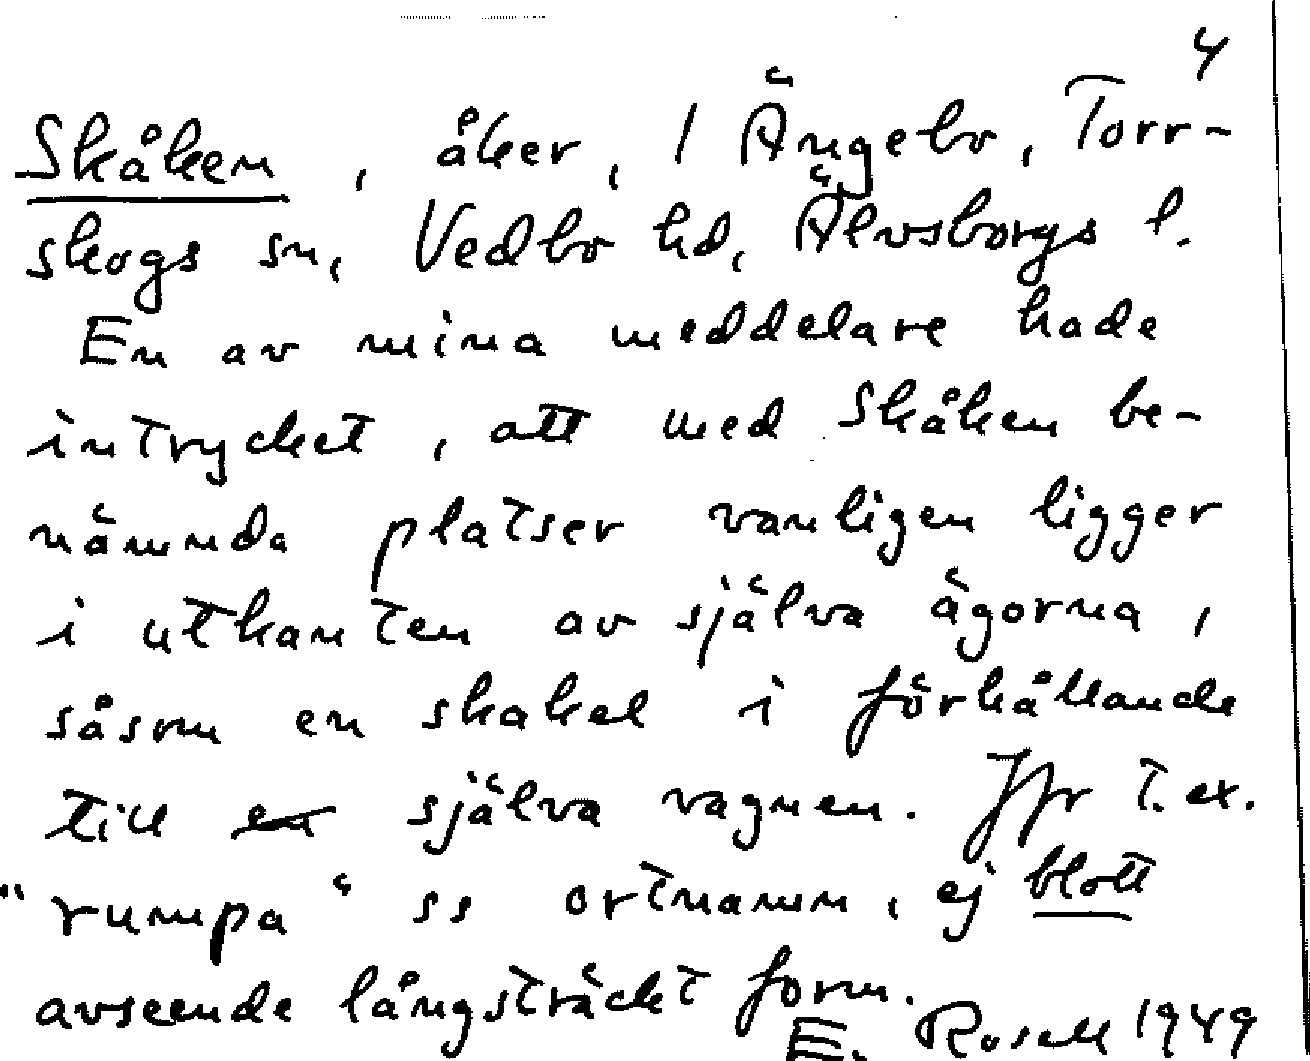 4
Skåken, åker, 1 Ängebo, Torr-
skogs sn, Vedbo hd, Älvsborgs l.
En av mina meddelare hade
intrycket, att med Skåken be-
nämnda platser vanligen ligger
i utkanten av själva ägorna,
såsom en skakel i förhållande
till en själva vagnen. Jfr t.ex.
"rumpa" ss ortnamn, ej blott
avseende långsträckt form.
E. Rosell 1949